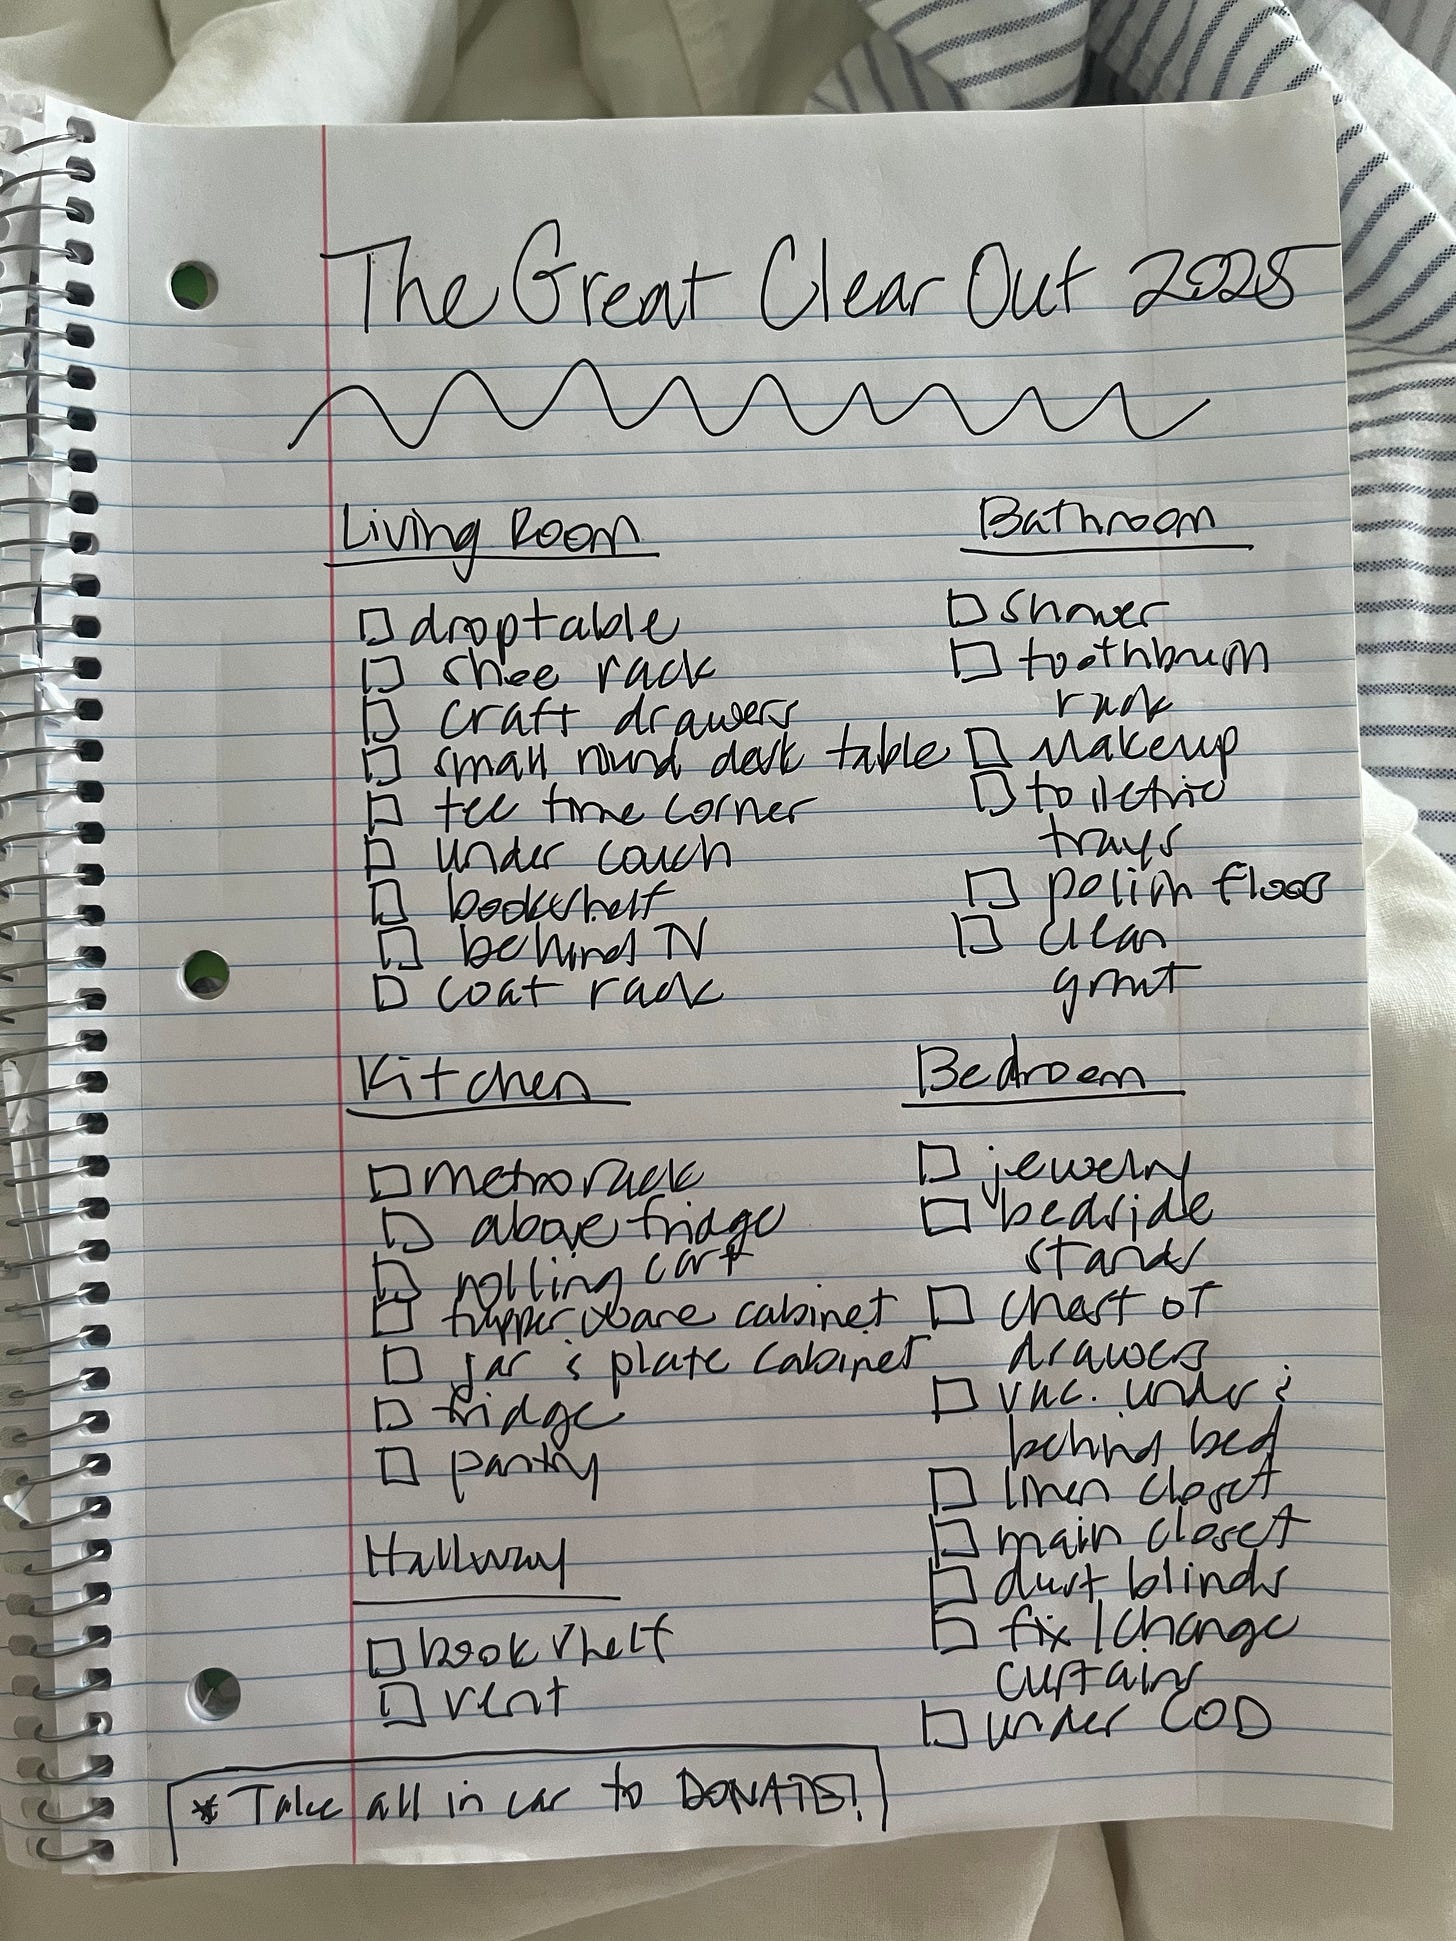 The Great Clear Out 2025
Living Room
droptable
shoe rack
craft drawers
small round desk table
tee time corner
under couch
bookshelf
behind TV
coat rack
Bathroom
shower
toothbrush
rack
makeup
toiletric
trays
polish floor
clean
grout
Kitchen
metro rack
above fridge
rolling cart
tupperware cabinet
jar & plate cabinet
fridge
pantry
Hallway
bookshelf
vent
Bedroom
jewelry
bedside
stands
chest of
drawers
vac. under &
behind bed
linen closet
main closet
dust blinds
fix/change
curtains
under COD
* Take all in car to DONATE!